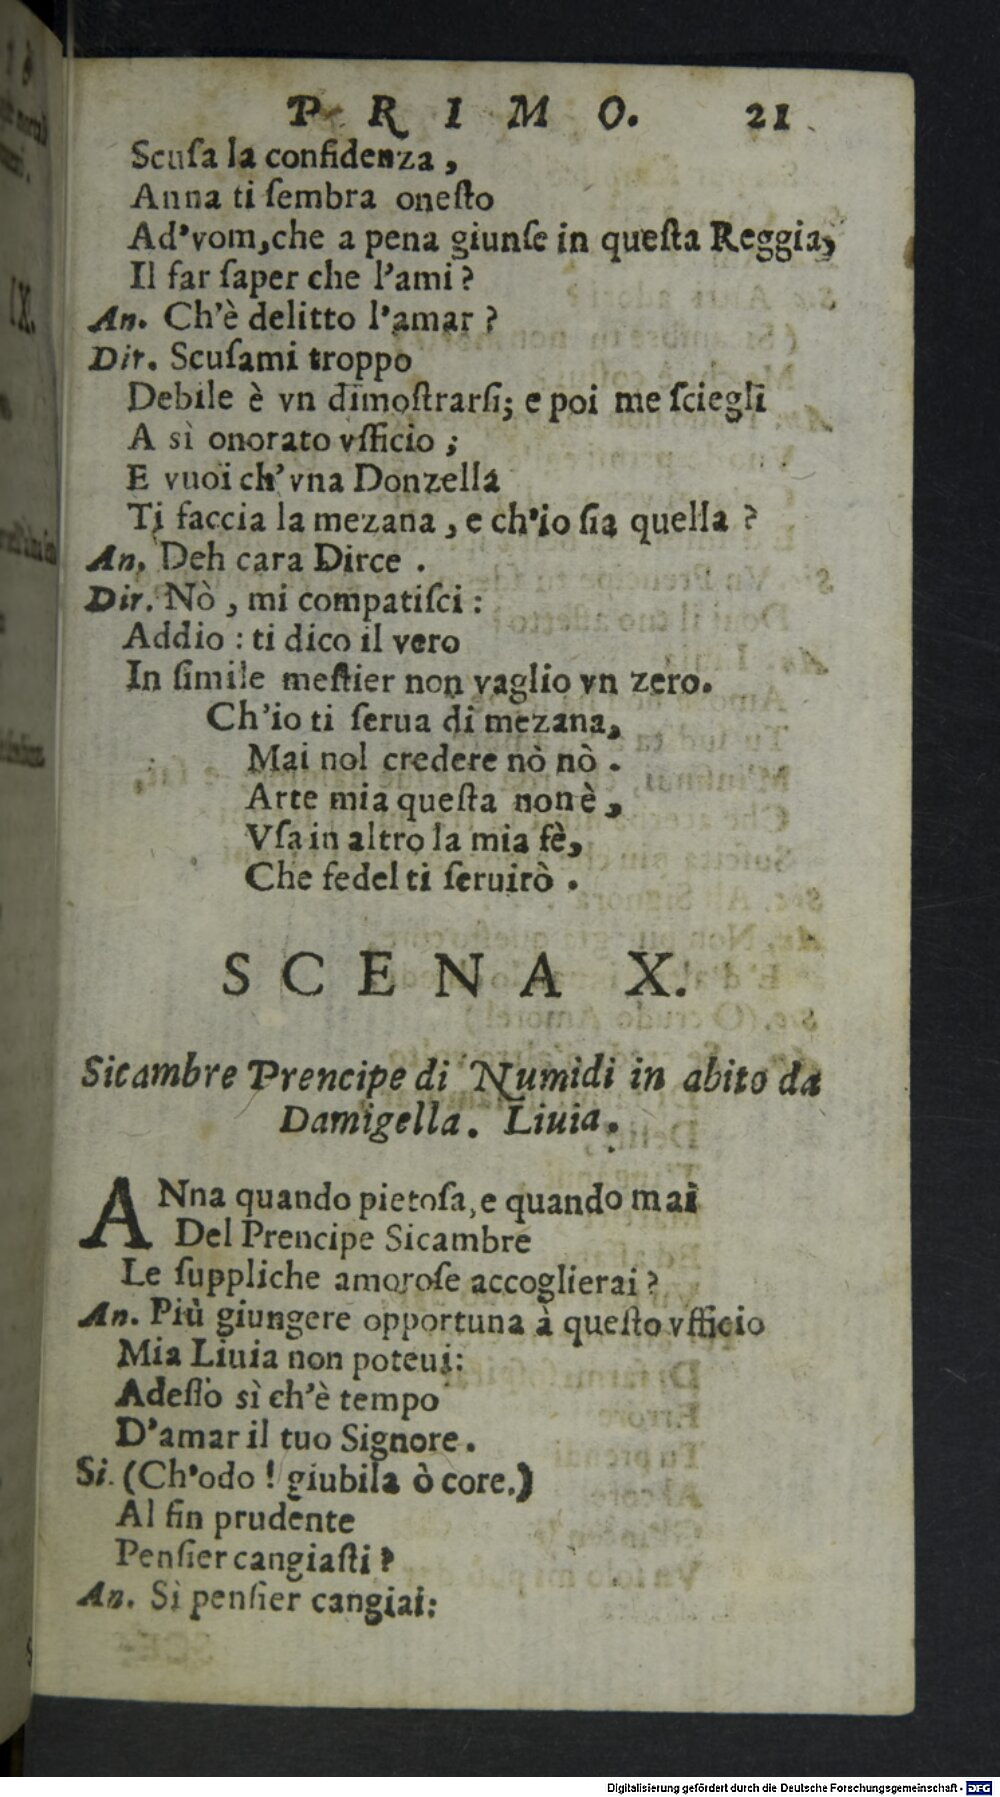 PRIMO. 21
Scuſa la confidenza,
Anna ti ſembra oneſto
Ad'vom, che a pena giunſe in queſta Reggia,
Il far ſaper che l'ami?
An. Ch'è delitto l'amar?
Dir. Scuſami troppo
Debile è vn dimoſtrarſi; e poi me ſciegli
A sì onorato vfficio;
E vuoi ch'vna Donzella
Ti faccia la mezana, e ch'io ſia quella?
An. Deh cara Dirce.
Dir. Nò, mi compatiſci:
Addio: ti dico il vero
In ſimile meſtier non vaglio vn zero.
Ch'io ti ſerua di mezana,
Mai nol credere nò nò.
Arte mia queſta non è,
Vſa in altro la mia fè,
Che fedel ti ſeruirò.
SCENA X.
Sicambre Prencipe di Numidi in abito da
Damigella. Liuia.
ANna quando pietoſa, e quando mai
Del Prencipe Sicambre
Le ſuppliche amoroſe accoglierai?
An. Più giungere opportuna à queſto vfficio
Mia Liuia non poteui:
Adeſſo sì ch'è tempo
D'amar il tuo Signore.
Si. (Ch'odo! giubila ò core.)
Al fin prudente
Penſier cangiaſti?
An. Sì penſier cangiai:
Digitalisierung gefördert durch die Deutsche Forschungsgemeinschaft - DFG